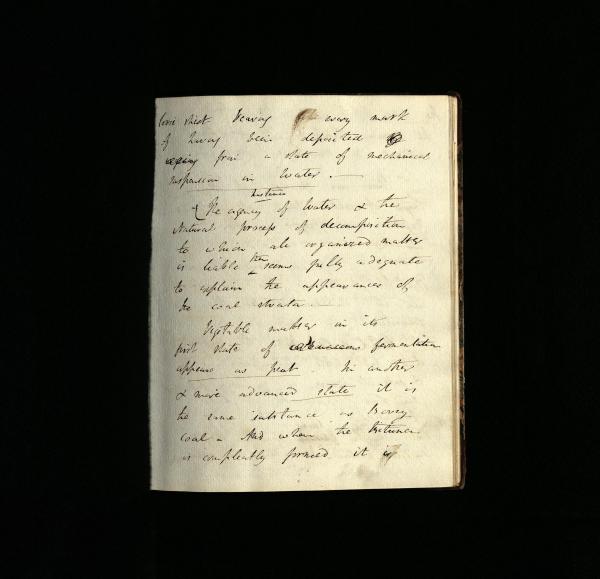 bearing every mark
of having been deposited
from a state of mechanical
suspension in Water. —
The agency of Water & the
Natural process of decomposition
to which all organized matter
is liable then seems fully adequate
to explain the appearances of
the coal strata. —
Vegetable matter in its
first state of fermentation
appears as peat. In another
& more advanced state it is
the same substance as Bovey
coal – And when the Bitumen
is compleatly formed it is